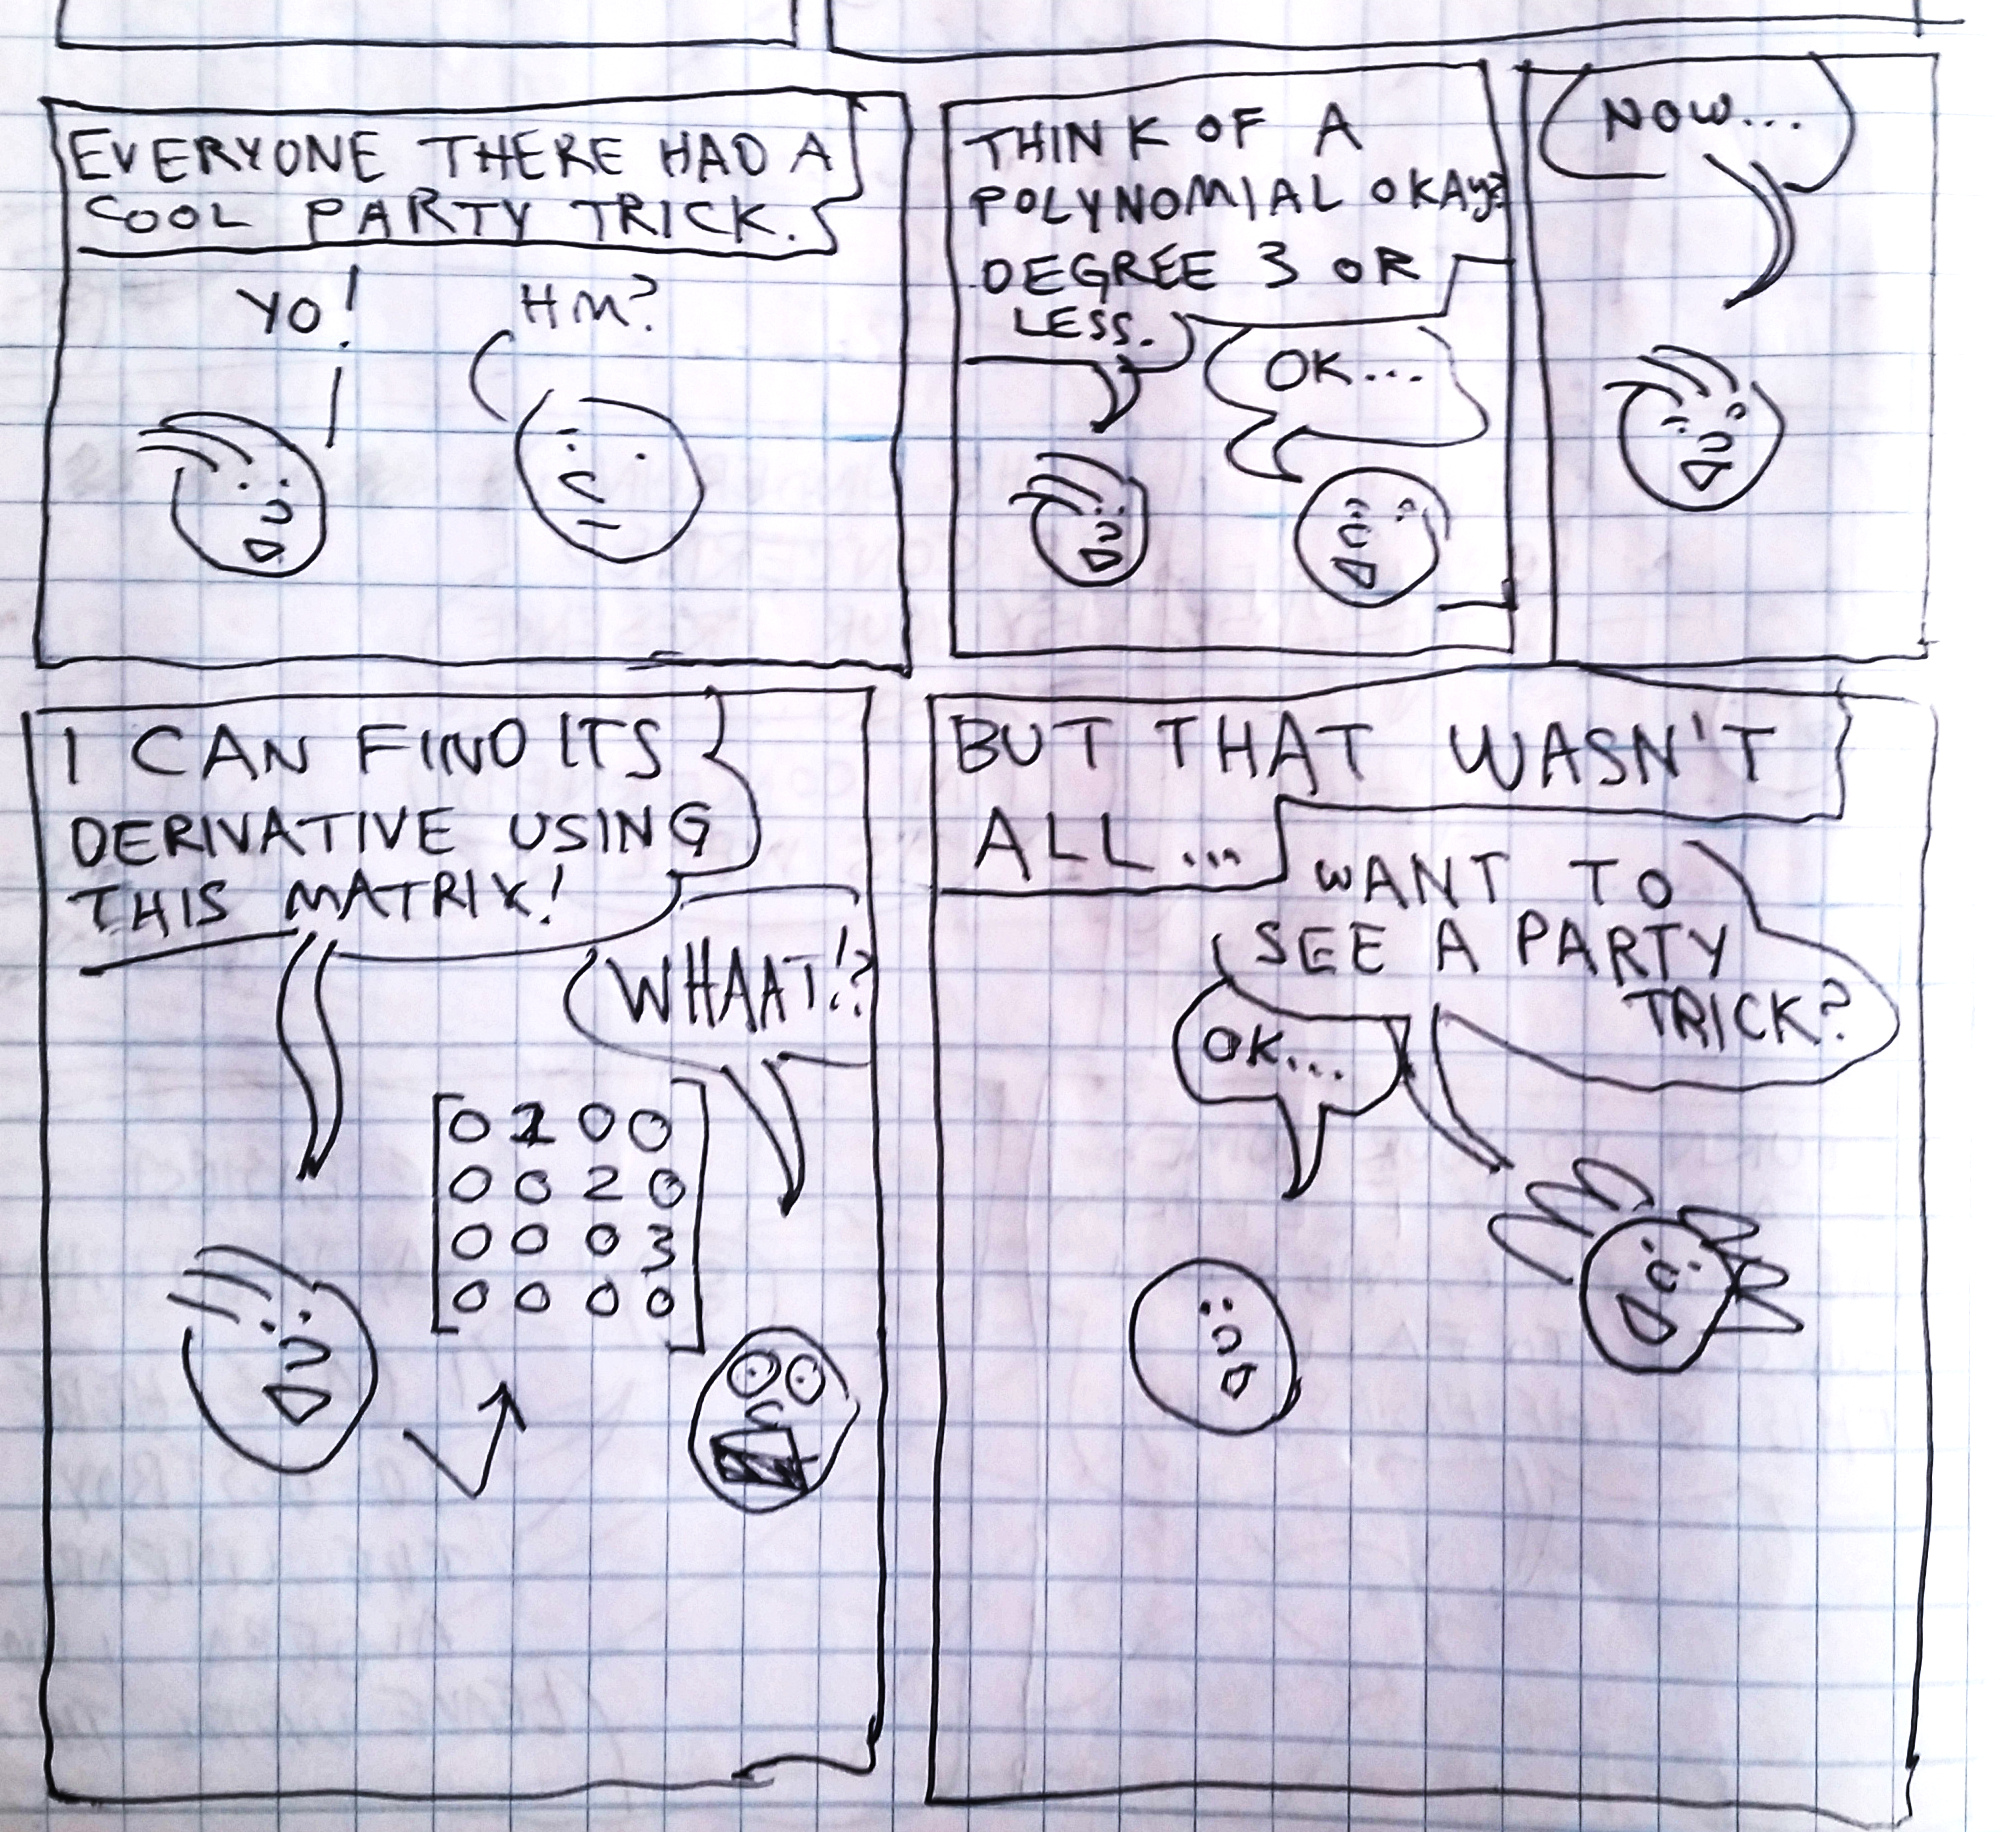 EVERYONE THERE HAD A
COOL PARTY TRICK.
YO!
HM?
THINK OF A
POLYNOMIAL OKAY?
DEGREE 3 OR
LESS.
OK...
NOW...
I CAN FIND ITS
DERIVATIVE USING
THIS MATRIX!
WHAAT!?
0 1 0 0
0 0 2 0
0 0 0 3
0 0 0 0
BUT THAT WASN'T
ALL...
WANT TO
SEE A PARTY
TRICK?
OK...